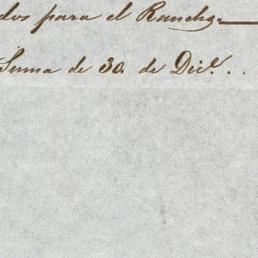 dos para el Rancho.
Suma de 30. de Dic.e . .